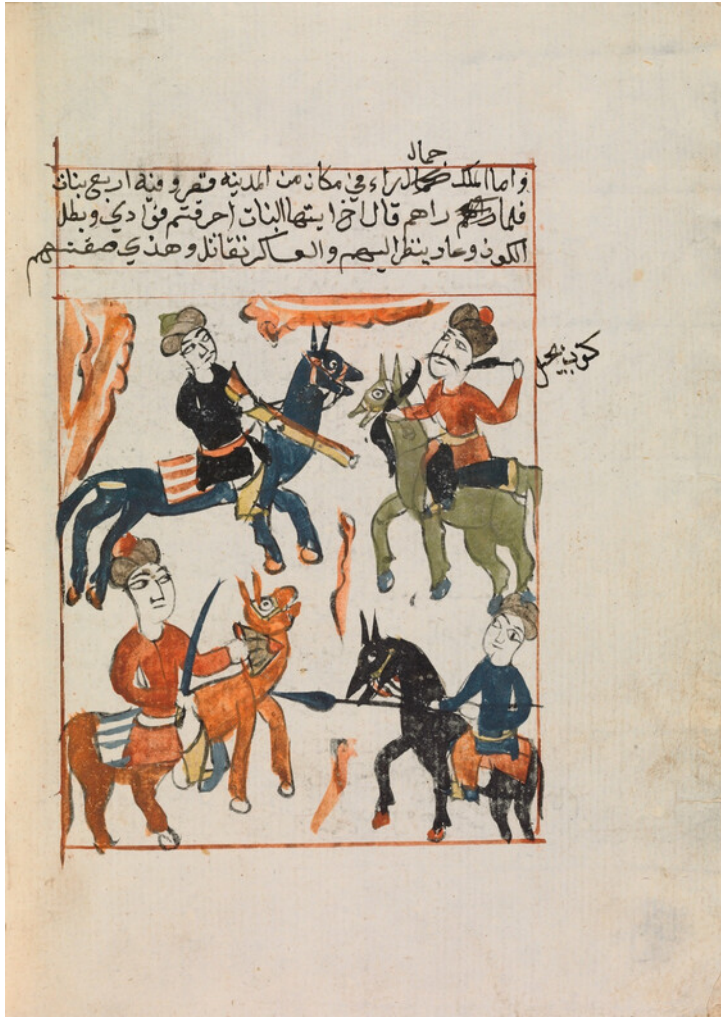 جمال
واما الملك جمال راء في مكان من المدينه قصر وفيه اربع بنات
فلما راهم قال اخ ايتها البنات احرقتم فوادي وبطل
الكون وعاد ينظر اليهم والعساكر تقاتل وهذي صفتهم